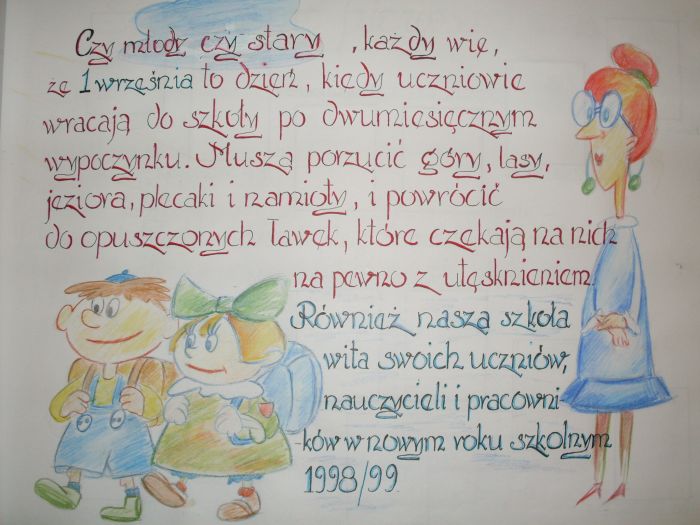 Czy młody czy stary, każdy wie,
że 1 września to dzień, kiedy uczniowie
wracają do szkoły po dwumiesięcznym
wypoczynku. Muszą porzucić góry, lasy,
jeziora, plecaki i namioty, i powrócić
do opuszczonych ławek, które czekają na nich
na pewno z utęsknieniem.
Również nasza szkoła
wita swoich uczniów,
nauczycieli i pracowni-
ków w nowym roku szkolnym
1998/99